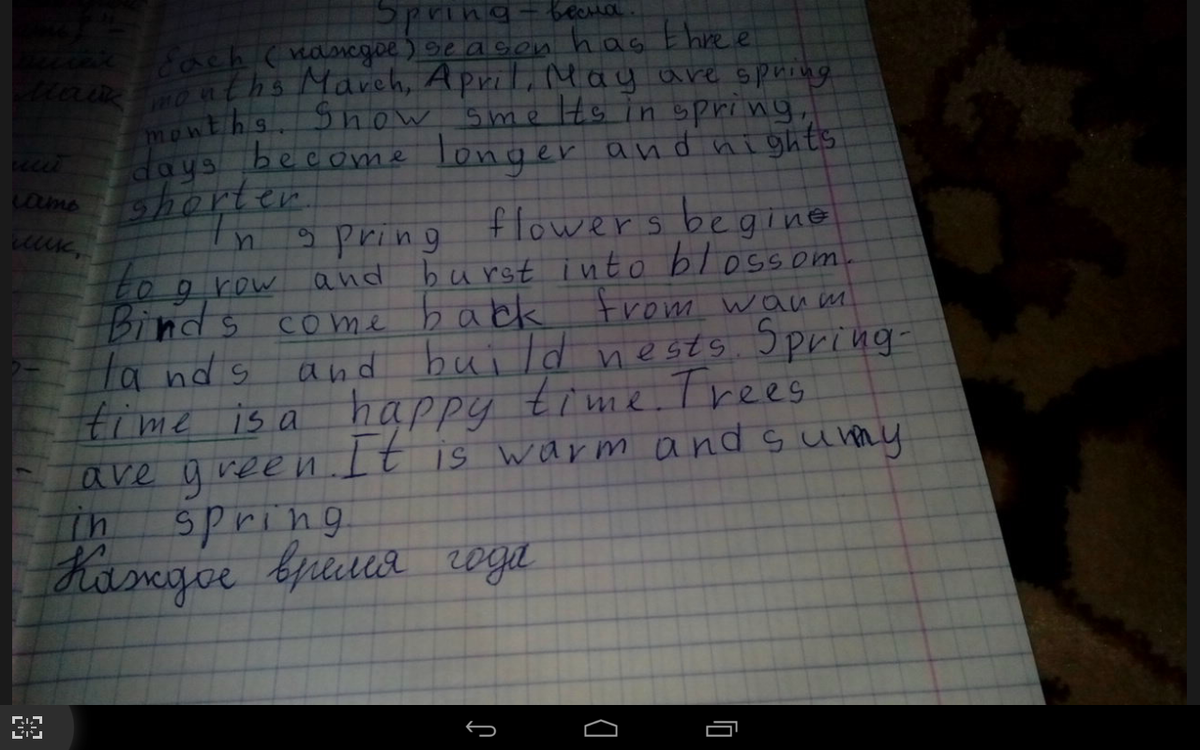 Spring - весна.
Each (каждое) season has three
months March, April, May are spring
months. Snow smelts in spring,
days become longer and nights
shorter.
In spring flowers begin
to grow and burst into blossom.
Binds come back from warm
lands and build nests. Spring-
time is a happy time. Trees
are green. It is warm and sunny
in spring.
Каждое время года